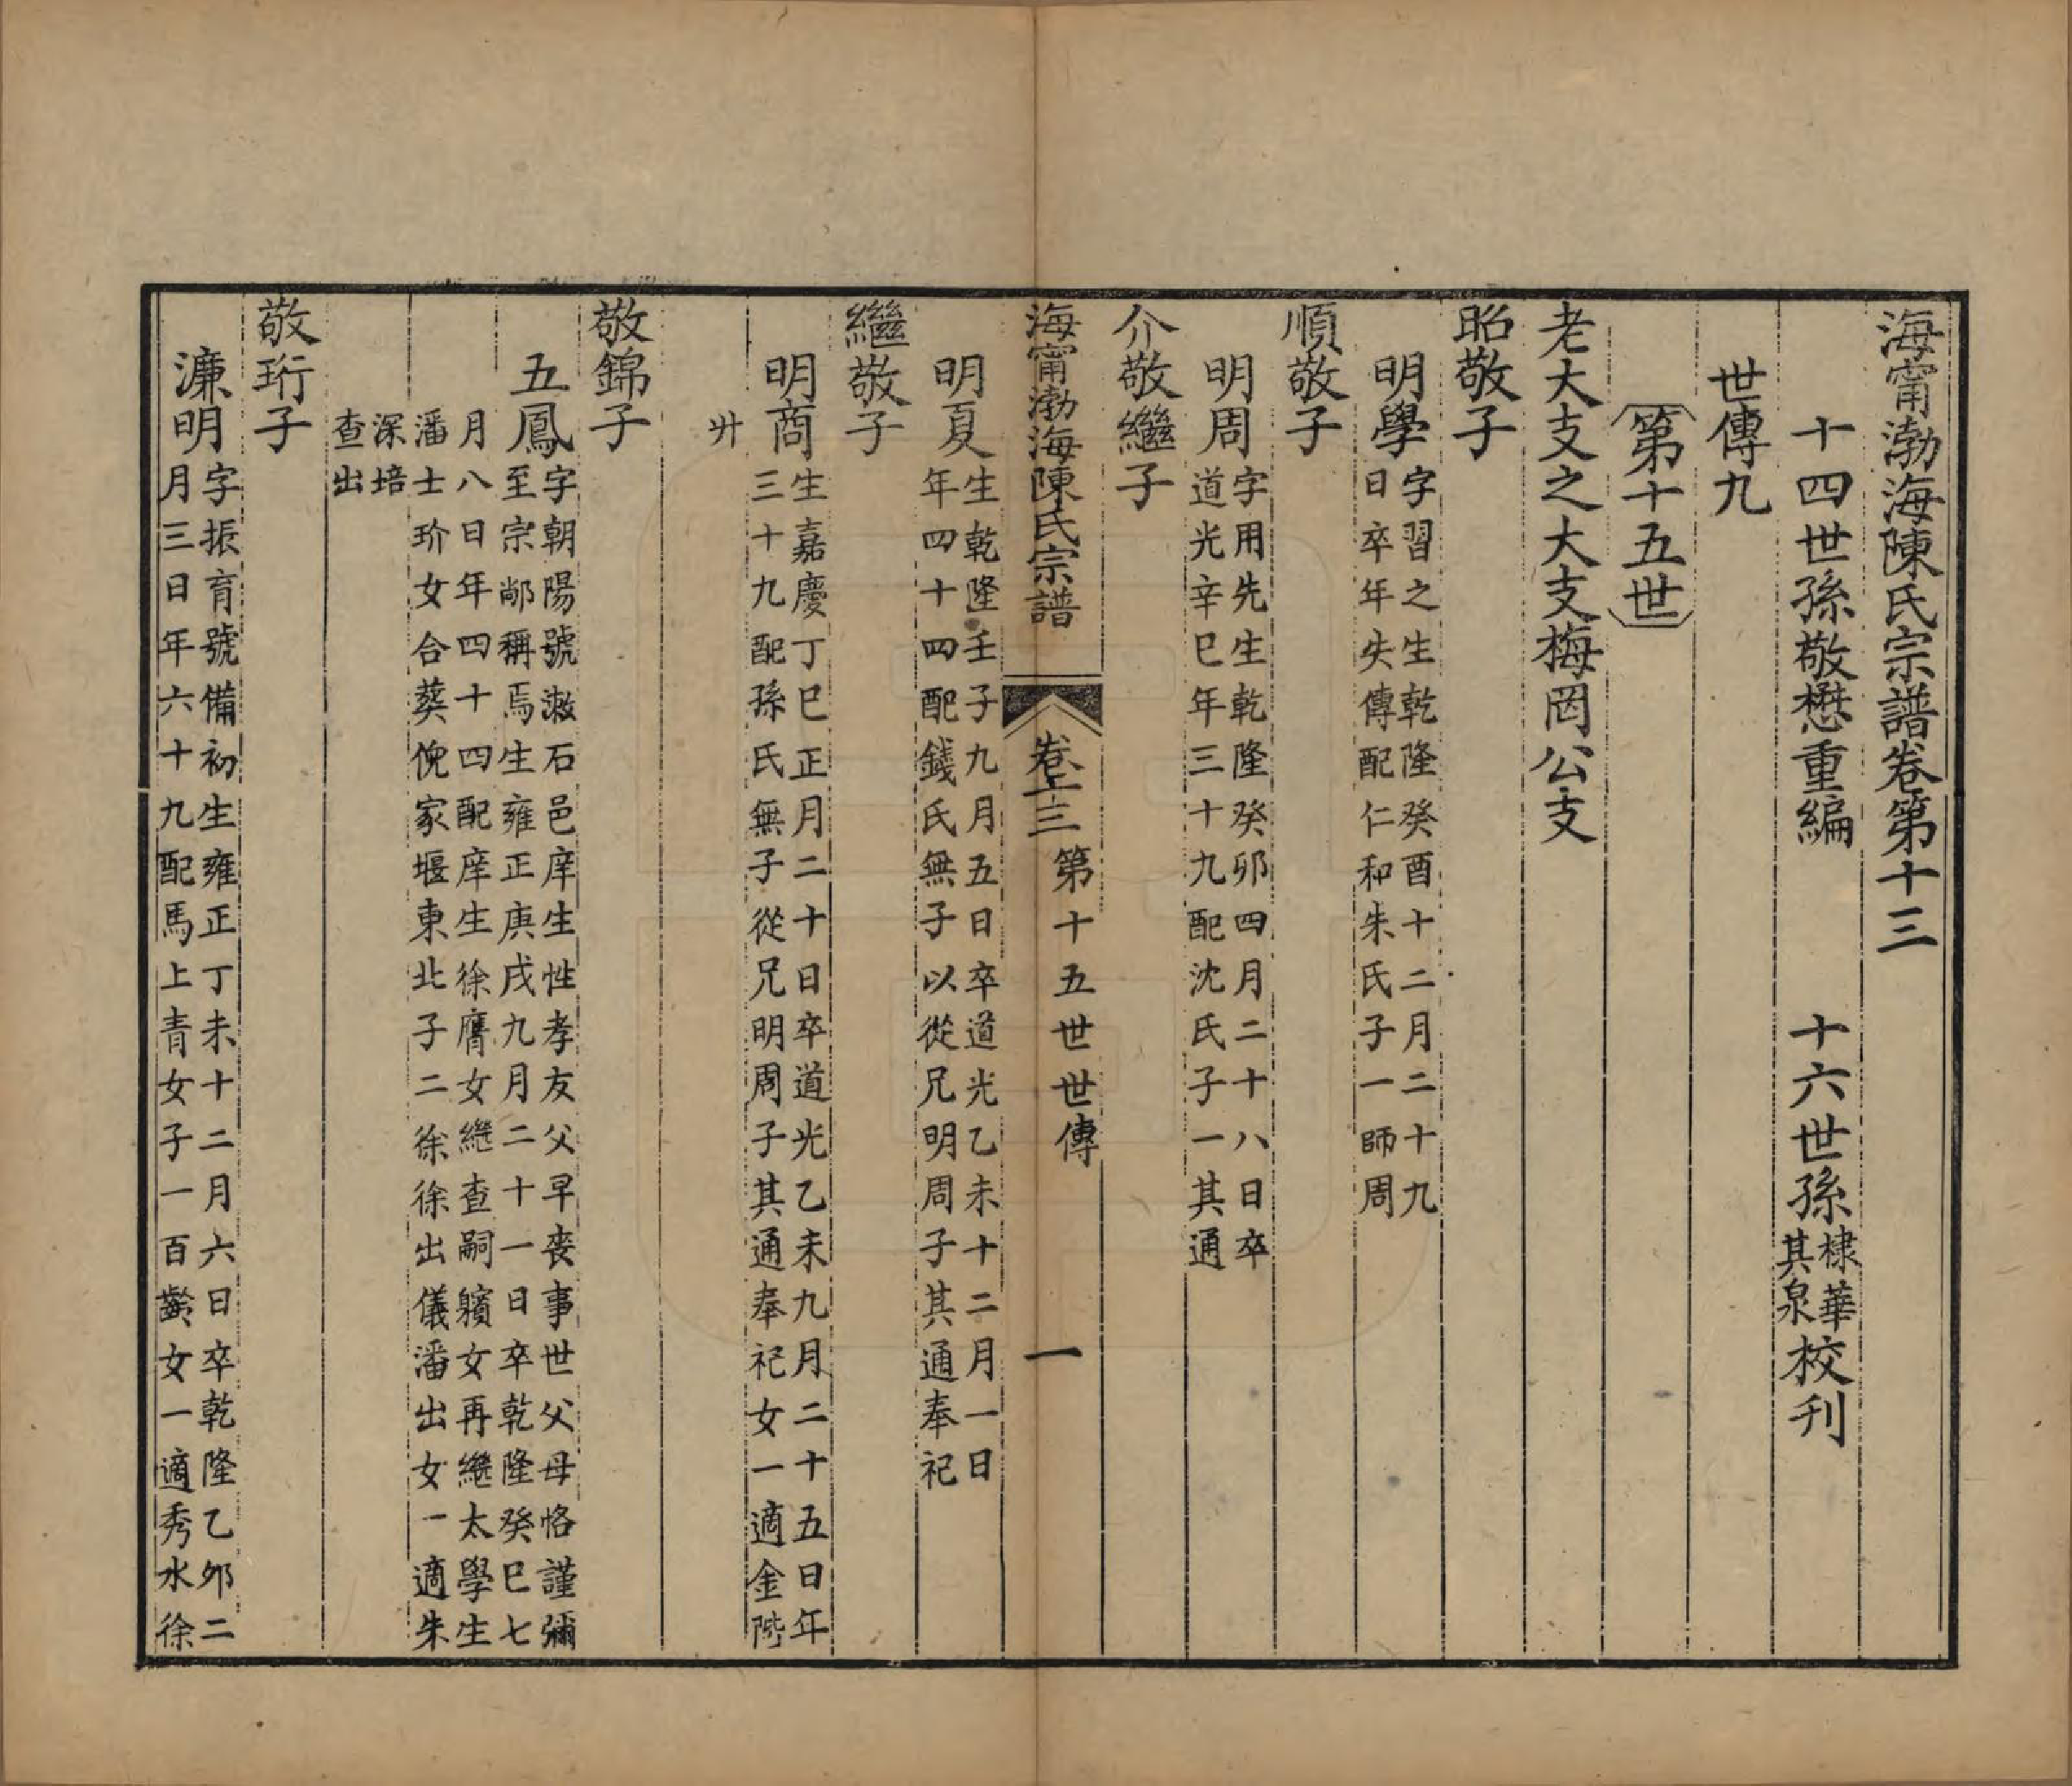 海甯渤海陳氏宗譜卷第十三
十四世孫敬懋重編　十六世孫棣華其泉校刊
世傳九
第十五世
老大支之大支梅岡公支
昭敬子
明學字習之生乾隆癸酉十二月二十九
日卒年失傳配仁和朱氏子一師周
順敬子
明周字用先生乾隆癸卯四月二十八日卒
道光辛巳年三十九配沈氏子一其通
介敬繼子
海甯渤海陳氏宗譜　卷十三　第十五世世傳　一
明夏生乾隆壬子九月五日卒道光乙未十二月一日
年四十四配錢氏無子以從兄明周子其通奉祀
繼敬子
明商生嘉慶丁巳正月二十日卒道光乙未九月二十五日年
三十九配孫氏無子從兄明周子其通奉祀女一適金陛
廾
敬錦子
五鳳字朝陽號漱石邑庠生性孝友父早喪事世父母恪謹彌
至宗鄰稱焉生雍正庚戌九月二十一日卒乾隆癸巳七
月八日年四十四配庠生徐膺女繼查嗣女再繼太學生
潘士玠女合葬倪家堰東北子二徐徐出儀潘出女一適朱
深培
查出
敬珩子
濂明字振育號備初生雍正丁未十二月六日卒乾隆乙卯二
月三日年六十九配馬上青女子一百齡女一適秀水徐